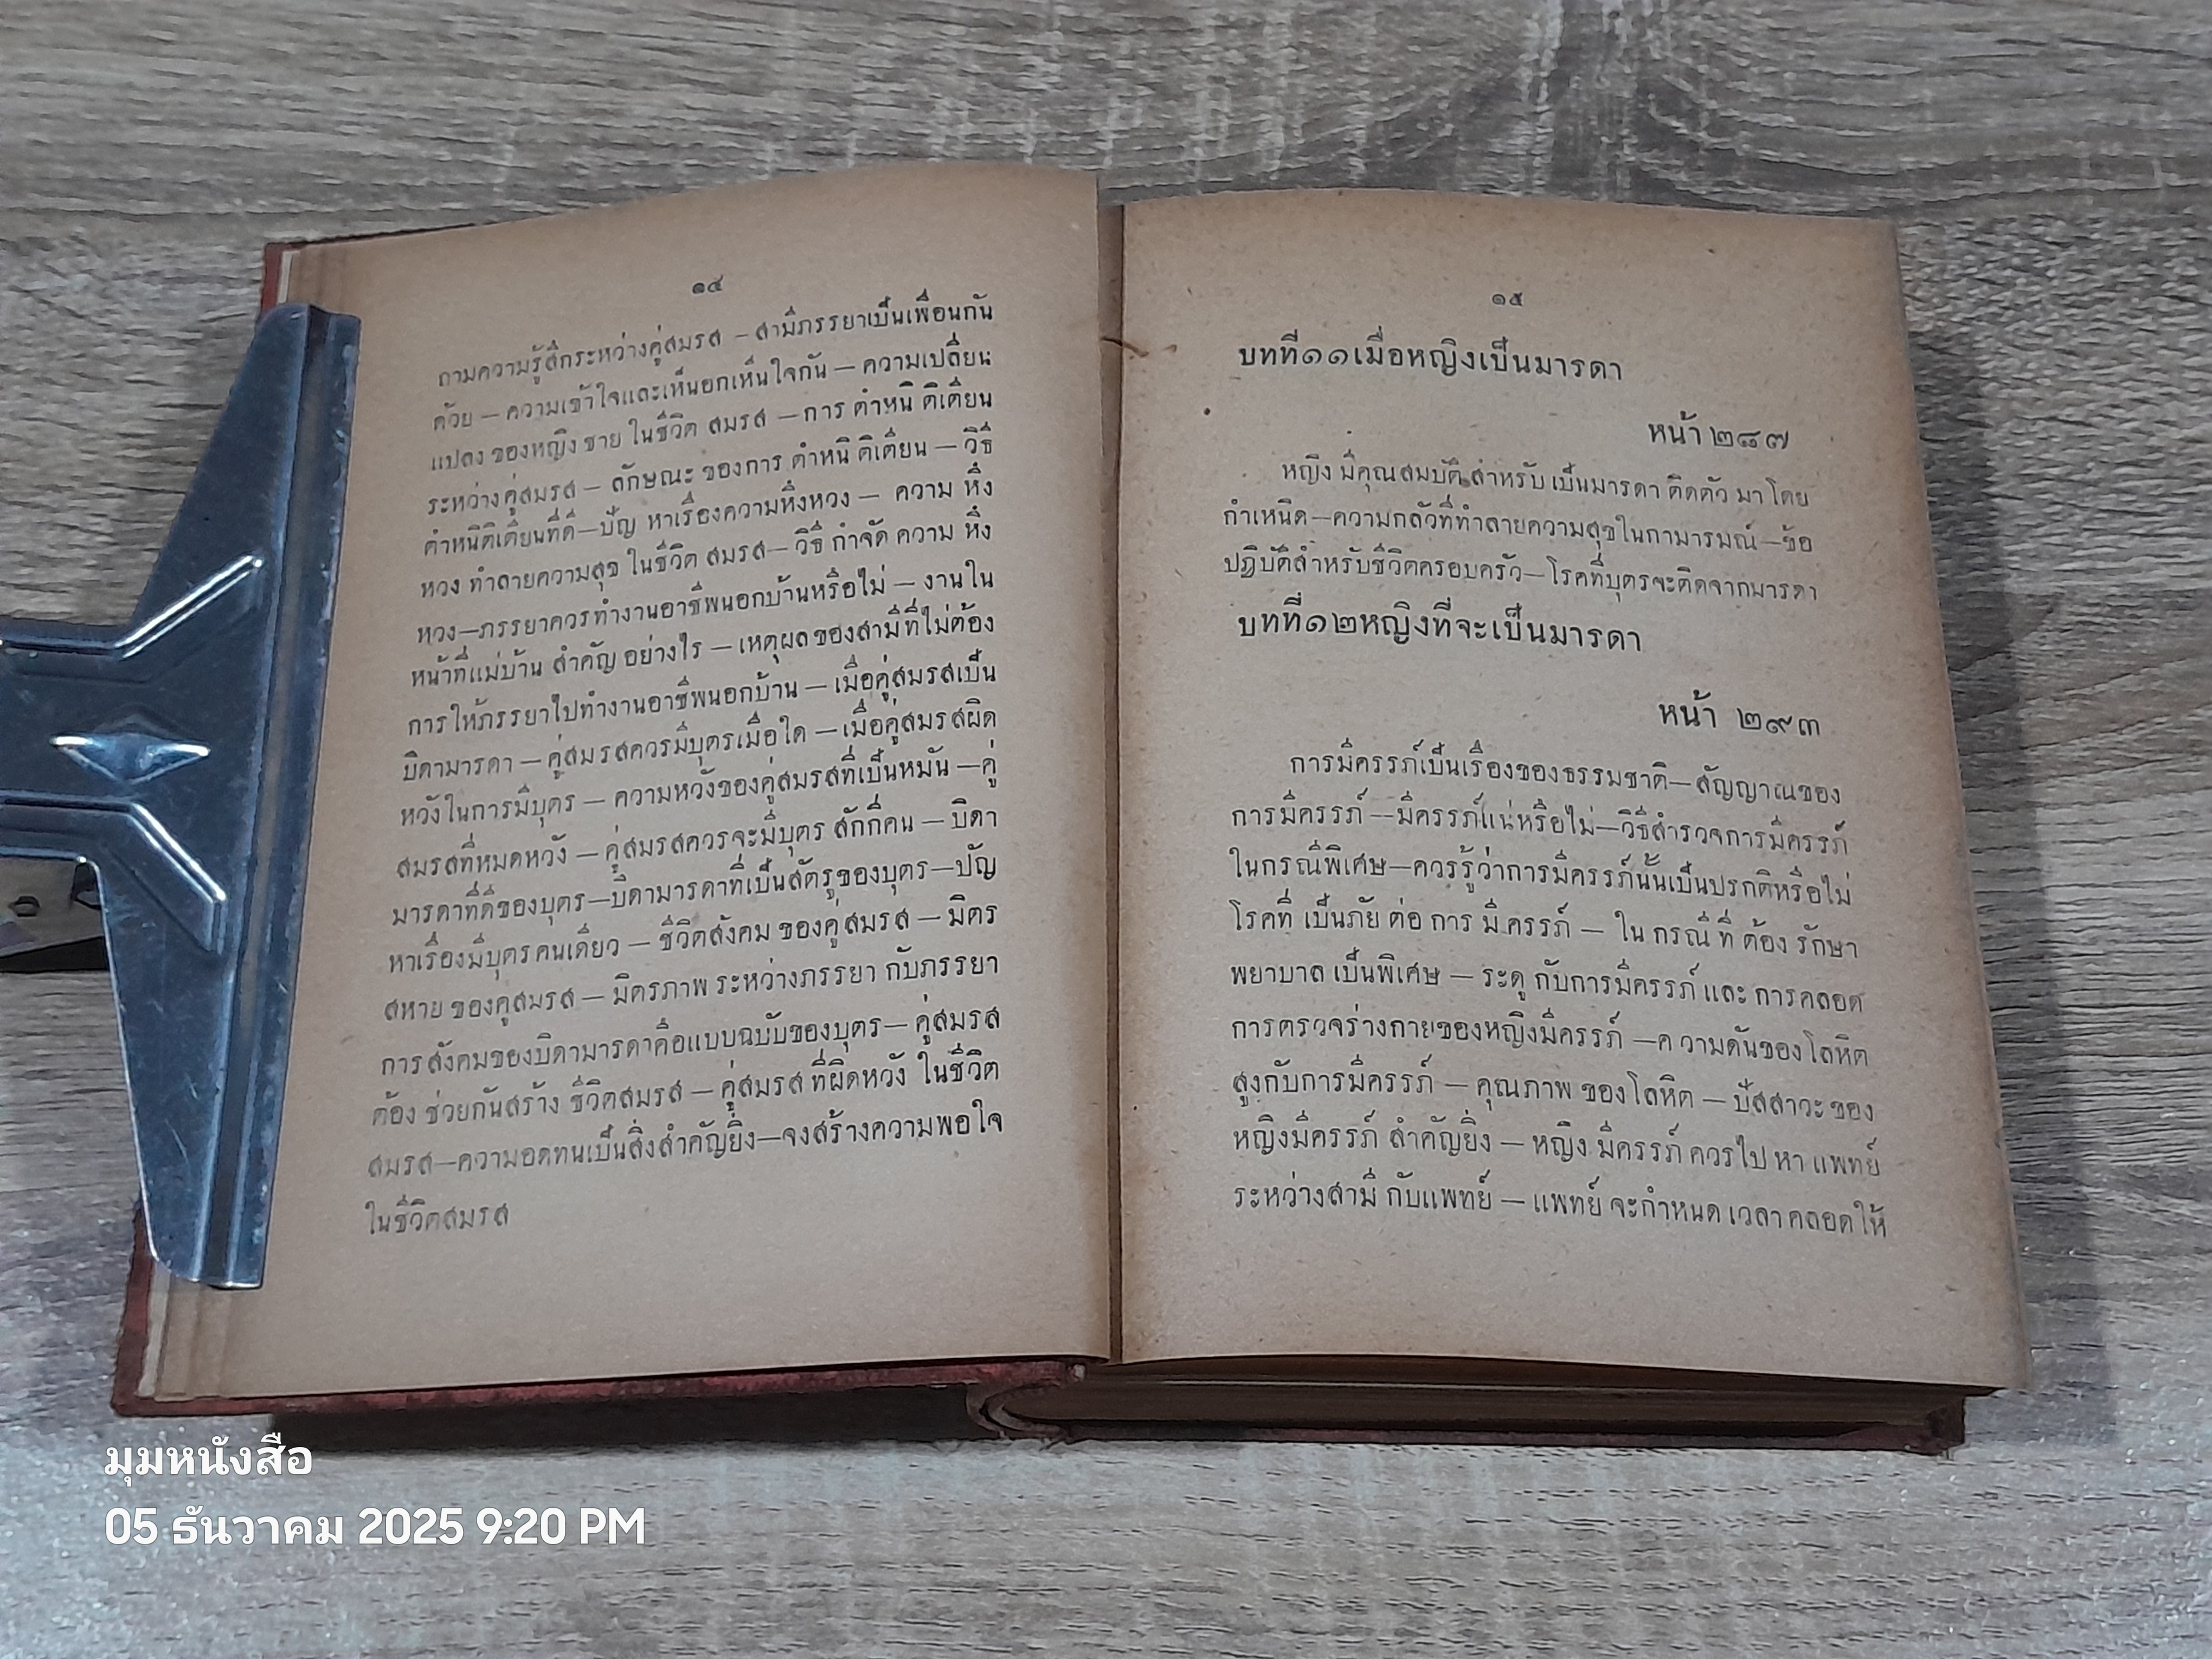 ๑๔
ถามความรู้สึกระหว่างคู่สมรส – สามีภรรยาเป็นเพื่อนกัน
ด้วย – ความเข้าใจและเห็นอกเห็นใจกัน – ความเปลี่ยน
แปลง ของหญิง ชาย ในชีวิต สมรส – การ ตำหนิ ติเตียน
ระหว่างคู่สมรส – ลักษณะ ของการ ตำหนิ ติเตียน – วิธี
ตำหนิติเตียนที่ดี – ปัญ หาเรื่องความหึงหวง – ความ หึง
หวง ทำลายความสุข ในชีวิต สมรส – วิธี กำจัด ความ หึง
หวง – ภรรยาควรทำงานอาชีพนอกบ้านหรือไม่ – งานใน
หน้าที่แม่บ้าน สำคัญ อย่างไร – เหตุผลของสามีที่ไม่ต้อง
การให้ภรรยาไปทำงานอาชีพนอกบ้าน – เมื่อคู่สมรสเป็น
บิดามารดา – คู่สมรสควรมีบุตรเมื่อใด – เมื่อคู่สมรสผิด
หวังในการมีบุตร – ความหวังของคู่สมรสที่เป็นหมัน – คู่
สมรสที่หมดหวัง – คู่สมรสควรจะมีบุตร สักกี่คน – บิดา
มารดาที่ดีของบุตร – บิดามารดาที่เป็นสัตรูของบุตร – ปัญ
หาเรื่องมีบุตรคนเดียว – ชีวิตสังคม ของคู่สมรส – มิตร
สหาย ของคู่สมรส – มิตรภาพ ระหว่างภรรยา กับภรรยา
การสังคมของบิดามารดาคือแบบฉบับของบุตร – คู่สมรส
ต้อง ช่วยกันสร้าง ชีวิตสมรส – คู่สมรส ที่ผิดหวัง ในชีวิต
สมรส – ความอดทนเป็นสิ่งสำคัญยิ่ง – จงสร้างความพอใจ
ในชีวิตสมรส
๑๕
บทที่๑๑เมื่อหญิงเป็นมารดา
หน้า ๒๘๗
หญิง มีคุณสมบัติ สำหรับ เป็นมารดา ติดตัว มา โดย
กำเหนิด – ความกลัวที่ทำลายความสุขในกามารมณ์ – ข้อ
ปฏิบัติสำหรับชีวิตครอบครัว – โรคที่บุตรจะติดจากมารดา
บทที่๑๒หญิงที่จะเป็นมารดา
หน้า ๒๙๓
การมีครรภ์เป็นเรื่องของธรรมชาติ – สัญญาณของ
การมีครรภ์ – มีครรภ์แน่หรือไม่ – วิธีสำรวจการมีครรภ์
ในกรณีพิเศษ – ควรรู้ว่าการมีครรภ์นั้นเป็นปรกติหรือไม่
โรคที่ เป็นภัย ต่อ การ มี ครรภ์ – ใน กรณี ที่ ต้อง รักษา
พยาบาล เป็นพิเศษ – ระดู กับการมีครรภ์ และ การคลอด
การตรวจร่างกายของหญิงมีครรภ์ – ค วามดันของโลหิต
สูงกับการมีครรภ์ – คุณภาพ ของโลหิต – ปัสสาวะ ของ
หญิงมีครรภ์ สำคัญยิ่ง – หญิง มีครรภ์ ควรไป หา แพทย์
ระหว่างสามี กับแพทย์ – แพทย์ จะกำหนด เวลา คลอดให้
มุมหนังสือ
05 ธันวาคม 2025 9:20 PM